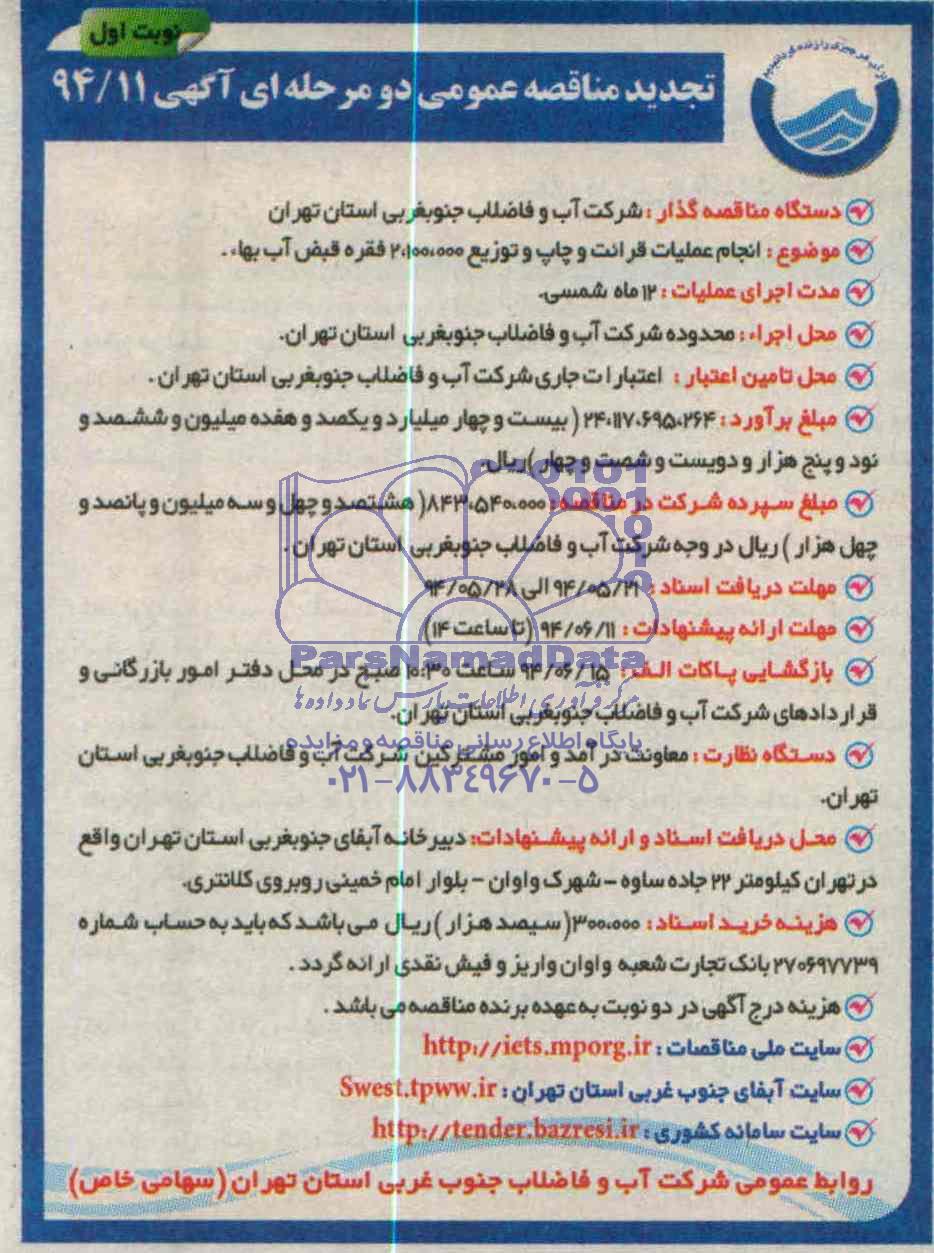 نوبت اول
تجدید مناقصه عمومی دو مرحله ای آگهی ۹۴/۱۱
دستگاه مناقصه گذار : شرکت آب و فاضلاب جنوبغربی استان تهران
موضوع : انجام عملیات قرائت و چاپ و توزیع ۲،۱۰۰،۰۰۰ فقره قبض آب بهاء .
مدت اجرای عملیات : ۱۲ ماه شمسی.
محل اجراء : محدوده شرکت آب و فاضلاب جنوبغربی استان تهران.
محل تامین اعتبار : اعتبارات جاری شرکت آب و فاضلاب جنوبغربی استان تهران .
مبلغ برآورد : ۲۴،۱۱۷،۶۹۵،۲۶۴ ( بیست و چهار میلیارد و یکصد و هفده میلیون و ششصد و
نود و پنج هزار و دویست و شصت و چهار )ریال.
مبلغ سپرده شرکت در مناقصه : ۸۴۳،۵۴۰،۰۰۰( هشتصد و چهل و سه میلیون و پانصد و
چهل هزار ) ریال در وجه شرکت آب و فاضلاب جنوبغربی استان تهران .
مهلت دریافت اسناد : ۹۴/۰۵/۲۱ الی ۹۴/۰۵/۲۸
مهلت ارائه پیشنهادات : ۹۴/۰۶/۱۱ (تا ساعت ۱۴)
ParsNamadData
بازگشایی پاکات الف : ۹۴/۰۶/۱۵ ساعت ۱۰:۳۰ صبح در محل دفتر امور بازرگانی و
مرکز فرآوری اطلاعات پارس نماد داده ها
قراردادهای شرکت آب و فاضلاب جنوبغربی استان تهران.
پایگاه اطلاع رسانی مناقصه و مزایده
دستگاه نظارت : معاونت درآمد و امور مشترکین شرکت آب و فاضلاب جنوبغربی استان
۰۲۱-۸۸۳۴۹۶۷۰-۵
تهران.
محل دریافت اسناد و ارائه پیشنهادات: دبیرخانه آبفای جنوبغربی استان تهران واقع
در تهران کیلومتر ۲۲ جاده ساوه - شهرک واوان - بلوار امام خمینی روبروی کلانتری.
هزینه خرید اسناد : ۳۰۰،۰۰۰( سیصد هزار ) ریال می باشد که باید به حساب شماره
۲۷۰۶۹۷۷۳۹ بانک تجارت شعبه واوان واریز و فیش نقدی ارائه گردد .
هزینه درج آگهی در دو نوبت به عهده برنده مناقصه می باشد .
سایت ملی مناقصات : http://iets.mporg.ir
سایت آبفای جنوب غربی استان تهران : Swest.tpww.ir
سایت سامانه کشوری : http://tender.bazresi.ir
روابط عمومی شرکت آب و فاضلاب جنوب غربی استان تهران (سهامی خاص)